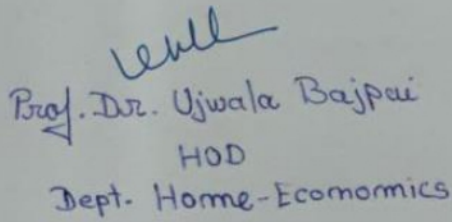 Prof. Dr. Ujwala Bajpai
HOD
Dept. Home-Ecomomics